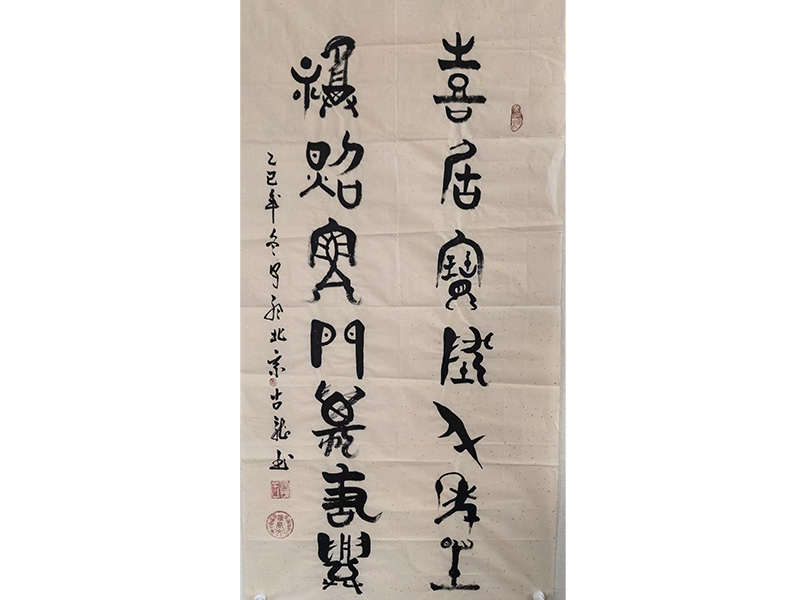 喜居寶地千年旺
福照家門萬事興
乙巳年冬月於北京古龍书